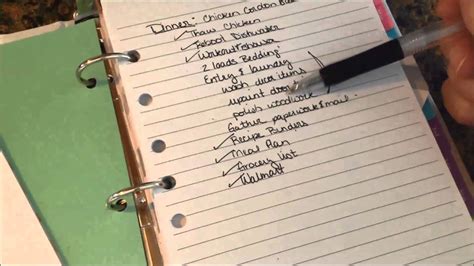 Dinner: Chicken Cordon
✓ Thaw Chicken
✓ Dishwater
✓ Workout & shower
2 loads Bedding
Entry & laundry
wash items
polish woodwork
Gather paperwork & mail
✓ Recipe Binders
✓ Meal Plan
✓ Grocery list
✓ Walmart